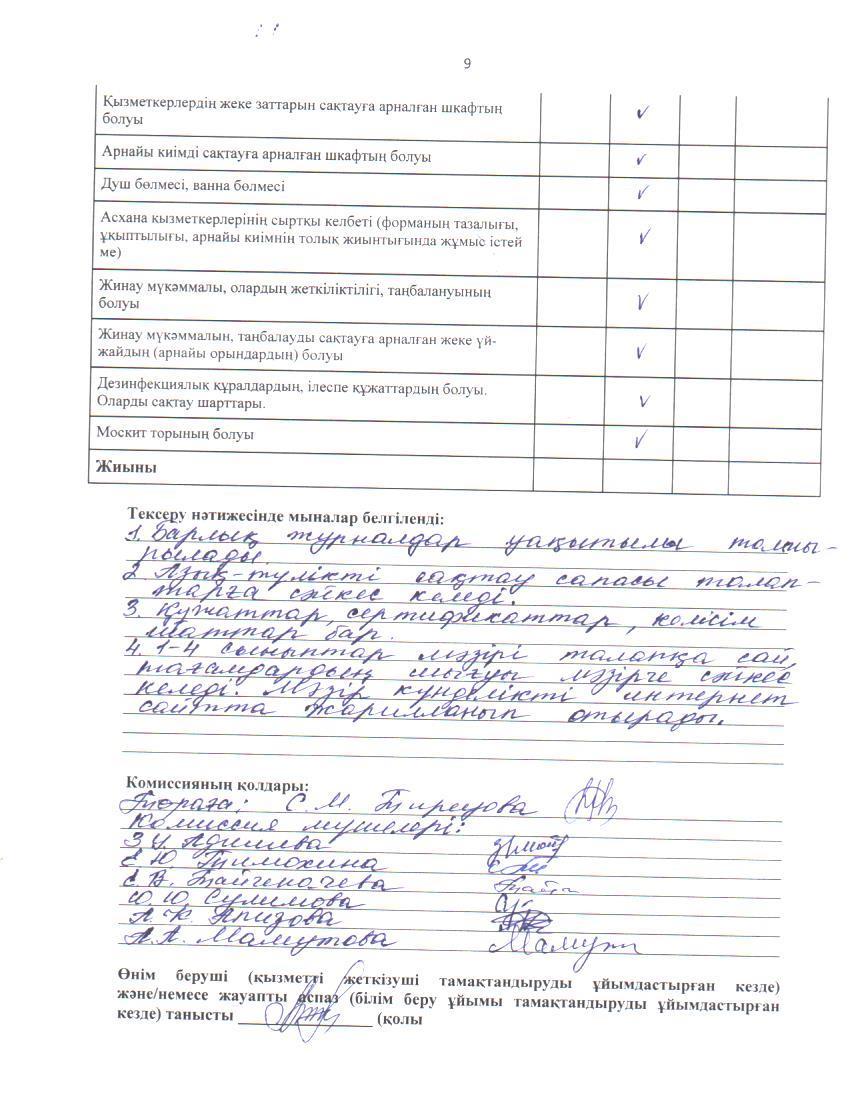 9
Қызметкерлердің жеке заттарын сақтауға арналған шкафтың
болуы
Арнайы киімді сақтауға арналған шкафтың болуы
Душ бөлмесі, ванна бөлмесі
Асхана қызметкерлерінің сыртқы келбеті (форманың тазалығы,
ұқыптылығы, арнайы киімнің толық жиынтығында жұмыс істей
ме)
Жинау мүкәммалы, олардың жеткіліктілігі, таңбалануының
болуы
Жинау мүкәммалын, таңбалауды сақтауға арналған жеке үй-
жайдың (арнайы орындардың) болуы
Дезинфекциялық құралдардың, ілеспе құжаттардың болуы.
Оларды сақтау шарттары.
Москит торының болуы
Жиыны
Тексеру нәтижесінде мыналар белгіленді:
1. Барлық журналдар уақытылы толты-
рылады.
2. Азық-түлікті сақтау сапасы талап-
тарға сәйкес келеді.
3. Құжаттар, сертификаттар, келісім
шаттар бар.
4. 1-4 сыныптар мәзірі талапқа сай,
тағамдардың шығуы мәзірге сәйкес
келеді. Мәзір күнделікті интернет
сайтта жарилланып отырады.
Комиссияның қолдары:
Төраға: С. М.
Комиссия мүшелері:
З. У. Адилева
Е. Ю. Тимохина
Е. В.
Ю. Ю. Сулимова
А. К.
А. А. Мамутова
Өнім беруші (қызметті жеткізуші тамақтандыруды ұйымдастырған кезде)
және/немесе жауапты аспаз (білім беру ұйымы тамақтандыруды ұйымдастырған
кезде) танысты ________________ (қолы